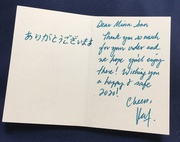 ありがとうございます
Dear Minna San
Thank you so much
for your order and
we hope you'll enjoy
these! Wishing you
a happy & safe
2020!
Cheers,